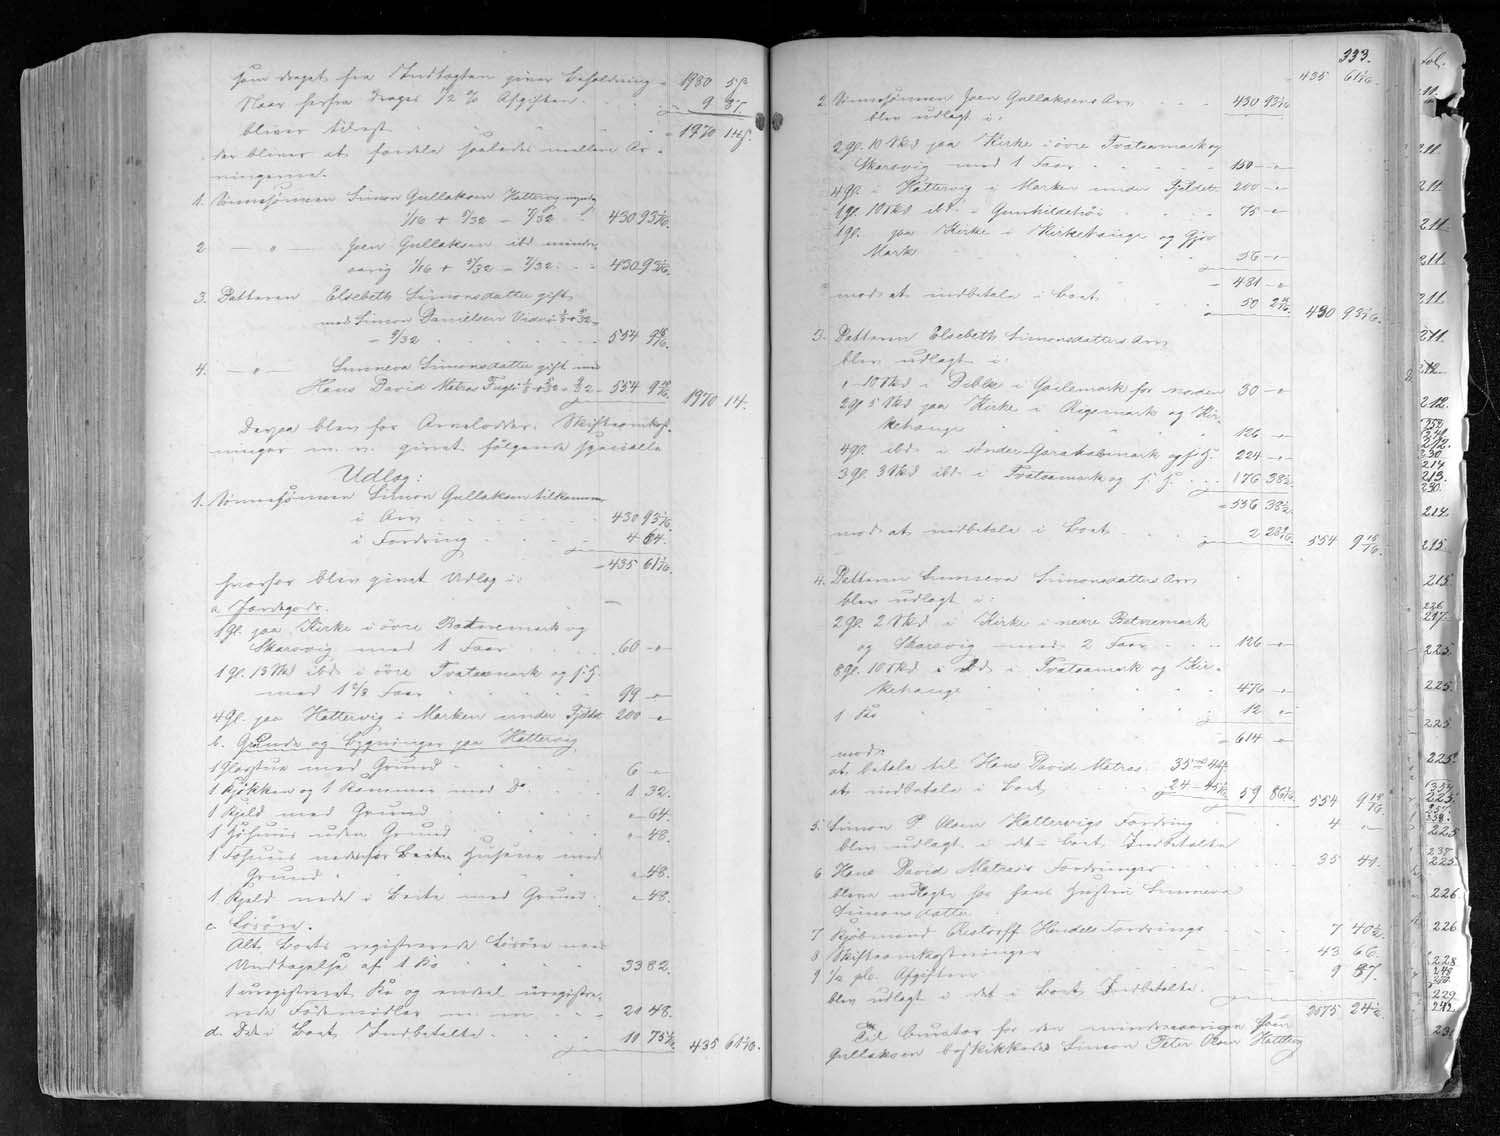 som draget fra Indtægten giver Beholdning - 1980 5ß
Naar herfra drages ½ % Afgiften . . . 9 87.
bliver tilrest . . . - 1970 14ß.
der bliver at fordele saaledes mellem Ar-
vingerne.
1. Sønnesønnen Simon Gullaksen Hattervig myndig
1/16 + 5/32 = 7/32 . . 430 93 1/16.
2 — " — Joen Gullaksen ibd minder-
aarig 1/16 + 5/32 = 7/32 . . - 430 93 1/16.
3. Datteren Elsebeth Simonsdatter gift
med Simon Danielsen Viderø 1/8 + 5/32 =
= 9/32 . . . 554 9 15/16.
4. — " — Sunneva Simonsdatter gift med
Hans David Matras Fuglø 1/8 + 5/32 = 9/32 - 554 9 15/16. 1970 14.
Derpaa blev for Arvelodder, Skifteomkost-
ninger m. v. givet følgende specielle
Udlæg:
1. Sønnesønnen Simon Gullaksen tilkommer
i Arv . . . 430 93 1/16.
i Fordring . . . 4 64.
- 435 61 1/16.
hvorfor blev givet Udlæg i:
a Jordegods.
1 gl. paa Kirke i øvre Bøtnemark og
Skarsvig med 1 Faar . . . 60 -"-
1 gl. 13 Skd ibd i øvre Tvatnamark og s. H.
med 1 2/3 Faar . . . 99 -"-
4 gl. paa Hattervig i Marken under Fjeldet 200 -"-
b. Grunde og Bygninger paa Hattervig
1 Glasstue med Grund . . . 6 -"-
1 Kjøkken og 1 Kammer med Do . . . 1 32.
1 Kjeld med Grund . . . "- 64.
1 Høhuus uden Grund . . . "- 48.
1 Fohuus nedenfor Beitu Husene med
Grund . . . "- 48.
1 Kjeld nede i Beite med Grund . "- 48.
c. Løsøre.
Alt Boets registrerede Løsøre med
Undtagelse af 1 Ko . . . 33 82.
1 uregistreret Ko og endel uregistre-
rede Fødemidler m. m. . . . 20 48.
d. Det i Boet Indbetalte . . . 11 75 1/16. 435 61 1/16.
333.
435 61 1/16.
2 Sønnesønnen Joen Gullaksens Arv . . . 430 93 1/16
blev udlagt i:
2 gl. 10 Skd paa Kirke i øvre Tvatnamark og
Skarsvig med 1 Faar . . . 150 -"-
4 gl. i Hattervig i Marken under Fjeldet 200 -"-
1 gl. 10 Skd ibd. i Gunhildatrøi . . . 75 -"-
1 gl. paa Kirke i Kirkehauge og
Mark . . . 56 -"-
- 481 -"-
mod at indbetale i Boet . . . 50 2 15/16. 430 93 1/16.
3. Datteren Elsebeth Simonsdatters Arv
blev udlagt i:
" 10 Skd i Dible i Heilemark for norden 30 -"-
2 gl 5 Skd paa Kirke i Rigemark og Kir-
kehauge . . . 126 -"-
4 gl. ibd. i Mark og s. H. 224 -"-
3 gl. 3 Skd ibd. i Tvatnamark og s. H. . . 176 38½
- 556 38½
mod at indbetale i Boet . . . 2 28 9/16. 554 9 15/16.
4. Datteren Sunneva Simonsdatters Arv
blev udlagt i:
2 gl. 2 Skd i Kirke i nedre Bøtnemark
og Skarsvig med 2 Faar . . . 126 -"-
8 gl. 10 Skd i ibd. i Tvatnamark og Kir-
kehauge . . . 476 -"-
1 Ko . . . 12 -"-
- 614 -"-
mod:
at betale til Hans David Matras 35 rd 41ß
at indbetale i Boet . . . 24 - 45 1/16 59 86 1/16. 554 9 15/16.
5. Simon P. Olsen Hattervigs Fordring . . . 4 -"-
blev udlagt i det i Boet Indbetalte
6 Hans David Matras's Fordringer . . . 35 41.
bleve udlagte for hans Hustru Sunneva
Simonsdatter.
7 Kjøbmand Restorff Handels Fordringe . . . 7 40½.
8 Skifteomkostninger . . . 43 66.
9 ½ pC. Afgiften . . . 9 87.
blev udlagt i det i Boet Indbetalte.
2075 24½.
Til Curator for den mindreaarige Joen
Gullaksen beskikkedes Simon Peter Olsen Hattervig
Fol.
211.
211.
211.
211.
211.
211.
212.
212.
230
214
213.
230.
214
215.
215.
226
217.
225.
225.
225
225.
225.
225
225.
226.
226
228
229